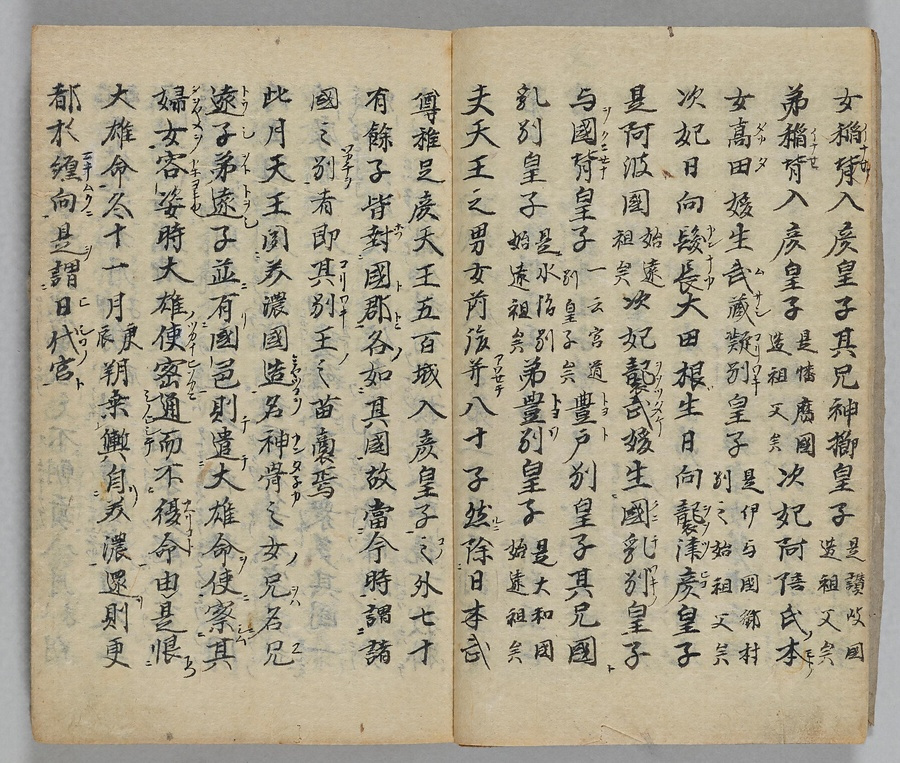 女稲背入彦皇子其兄神櫛皇子是讃岐國造祖父矣
弟稲背入彦皇子是幡磨國造祖父矣次妃阿陪氏木
女高田媛生武藏凝別皇子是伊与國御村別之始祖父矣
次妃日向髮長大田根生日向襲津彦皇子
是阿波國始遠祖矣次妃襲武媛生國乳別皇子
与國背皇子一云宮道別皇子矣豊戸別皇子其兄國
乳別皇子是水沼別始遠祖矣弟豊別皇子是大和國始遠祖矣
夫天王之男女前後并八十子然除日本武
尊稚足彦天王五百城入彦皇子之外七十
有餘子皆封國郡各如其國故當今時謂諸
國之別者即其別王之苗裔焉
此月天王聞美濃國造名神骨之女兄名兄
遠子弟遠子並有國色則遣大雄命使察其
婦女容姿時大雄使密通而不復命由是恨
大雄命冬十一月庚辰朔乗輿自美濃還則更
都於纏向是謂日代宮